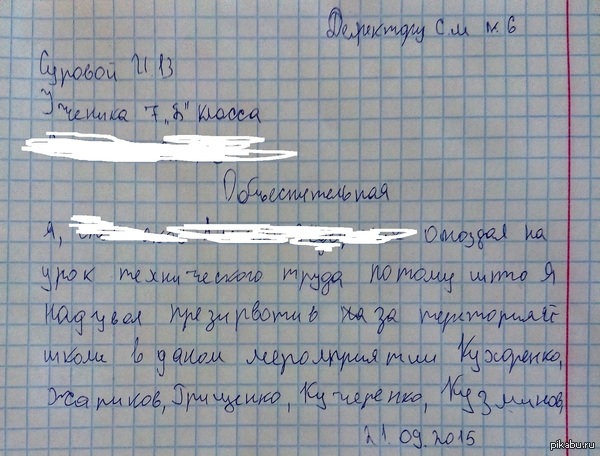 Деректору С.м № 6
Суровой И В
Ученика 7 „Б" класса
Объеснительная
Я, опоздал на
урок технического труда потому што Я
надувал презирвотив за територияй
школи в даном мероприятии Кухоренко,
Жариков, Грищенко, Кучеренко, Кузминов
21.09.2015
pikabu.ru